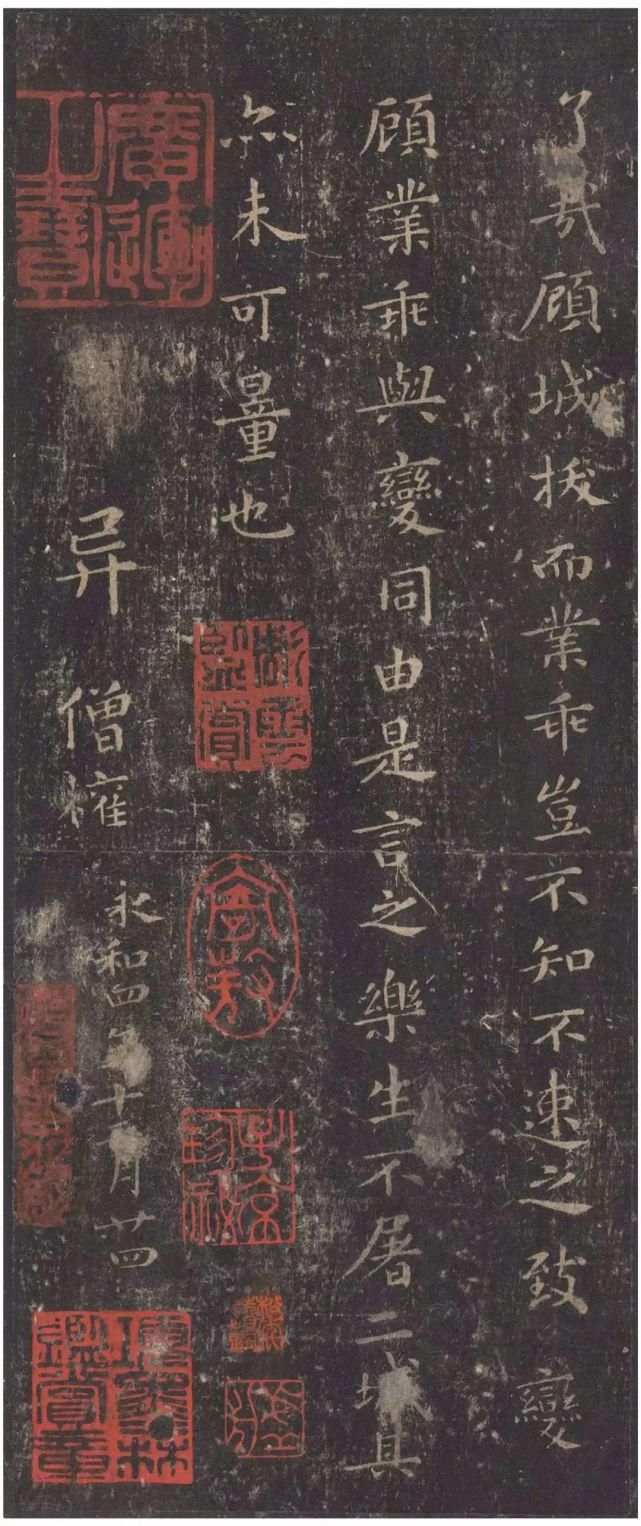 了哉顧城拔而業乖豈不知不速之致變
顧業乖與變同由是言之樂生不屠二城其
亦未可量也
异 僧權
永和四年十二月廿四
廣運之寶